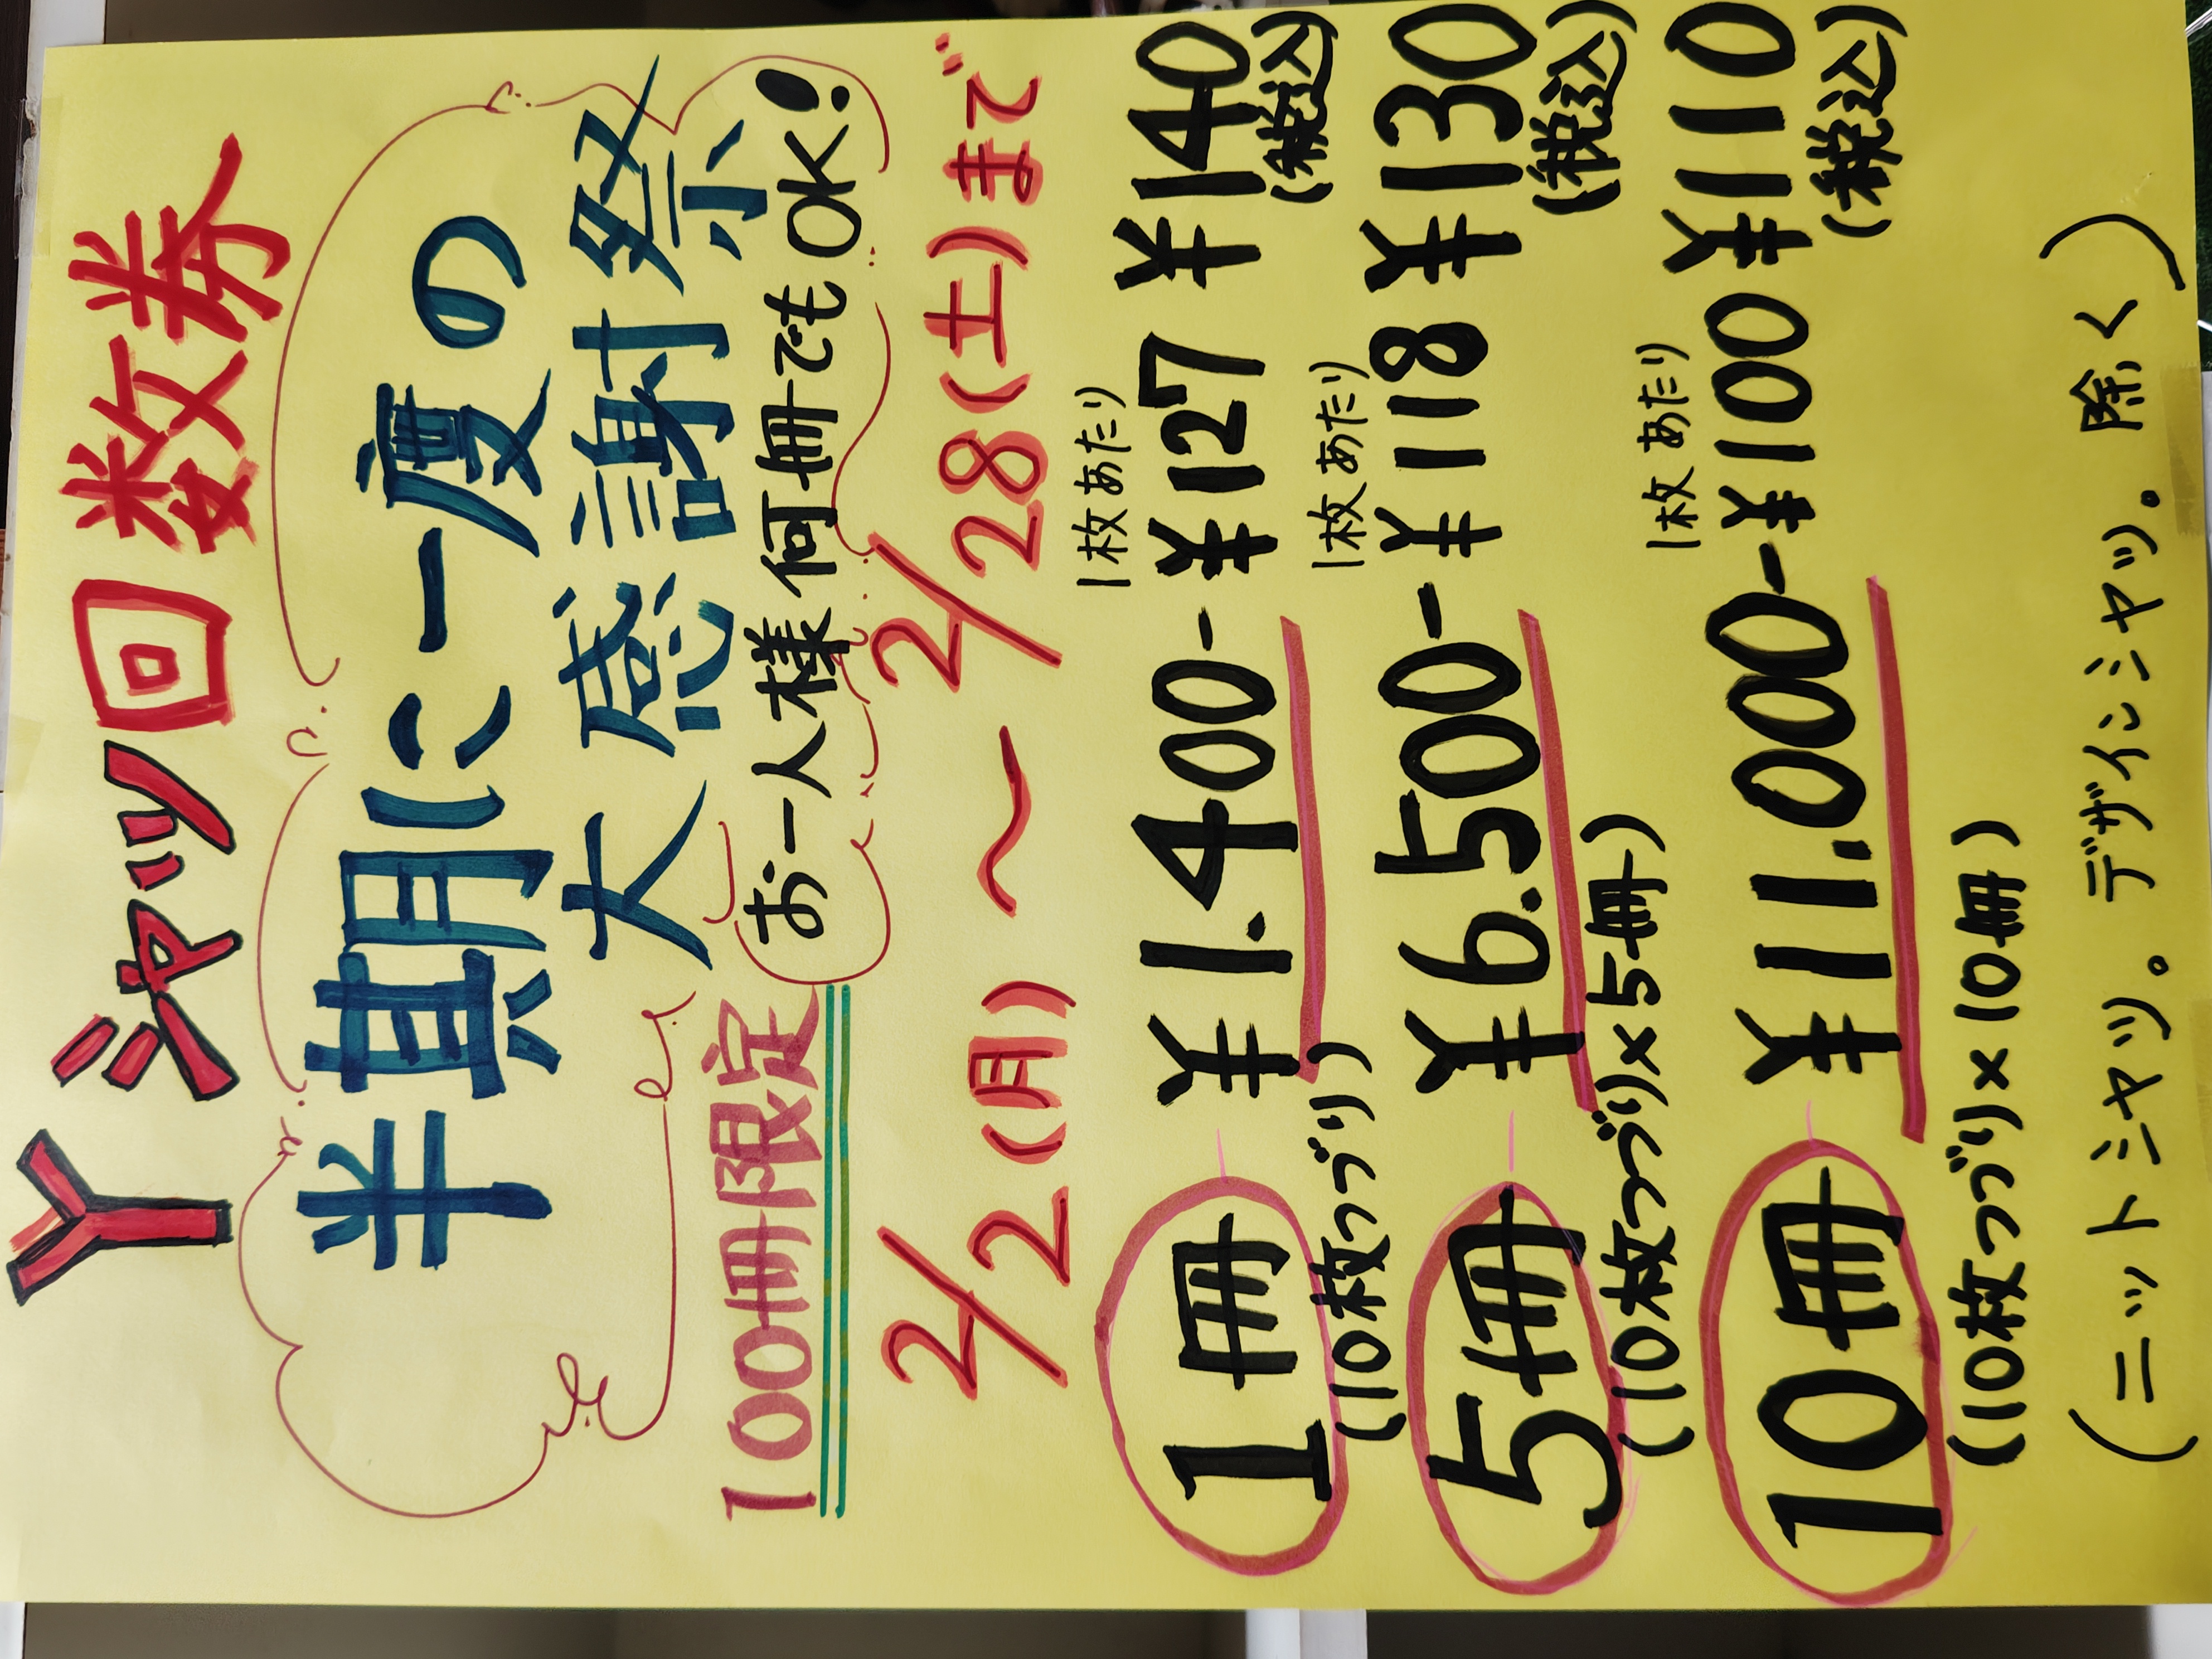 Yシャツ回数券
半期に一度の
大感謝祭
100冊限定
お一人様何冊でもOK!
2/2(月)〜2/28(土)まで
1枚あたり
1冊 ¥1.400- ¥127 ¥140
(10枚つづり) (税込)
1枚あたり
5冊 ¥6.500- ¥118 ¥130
(10枚つづり×5冊) (税込)
1枚あたり
10冊 ¥11.000- ¥100 ¥110
(10枚つづり×10冊) (税込)
(ニットシャツ。デザインシャツ。除く)